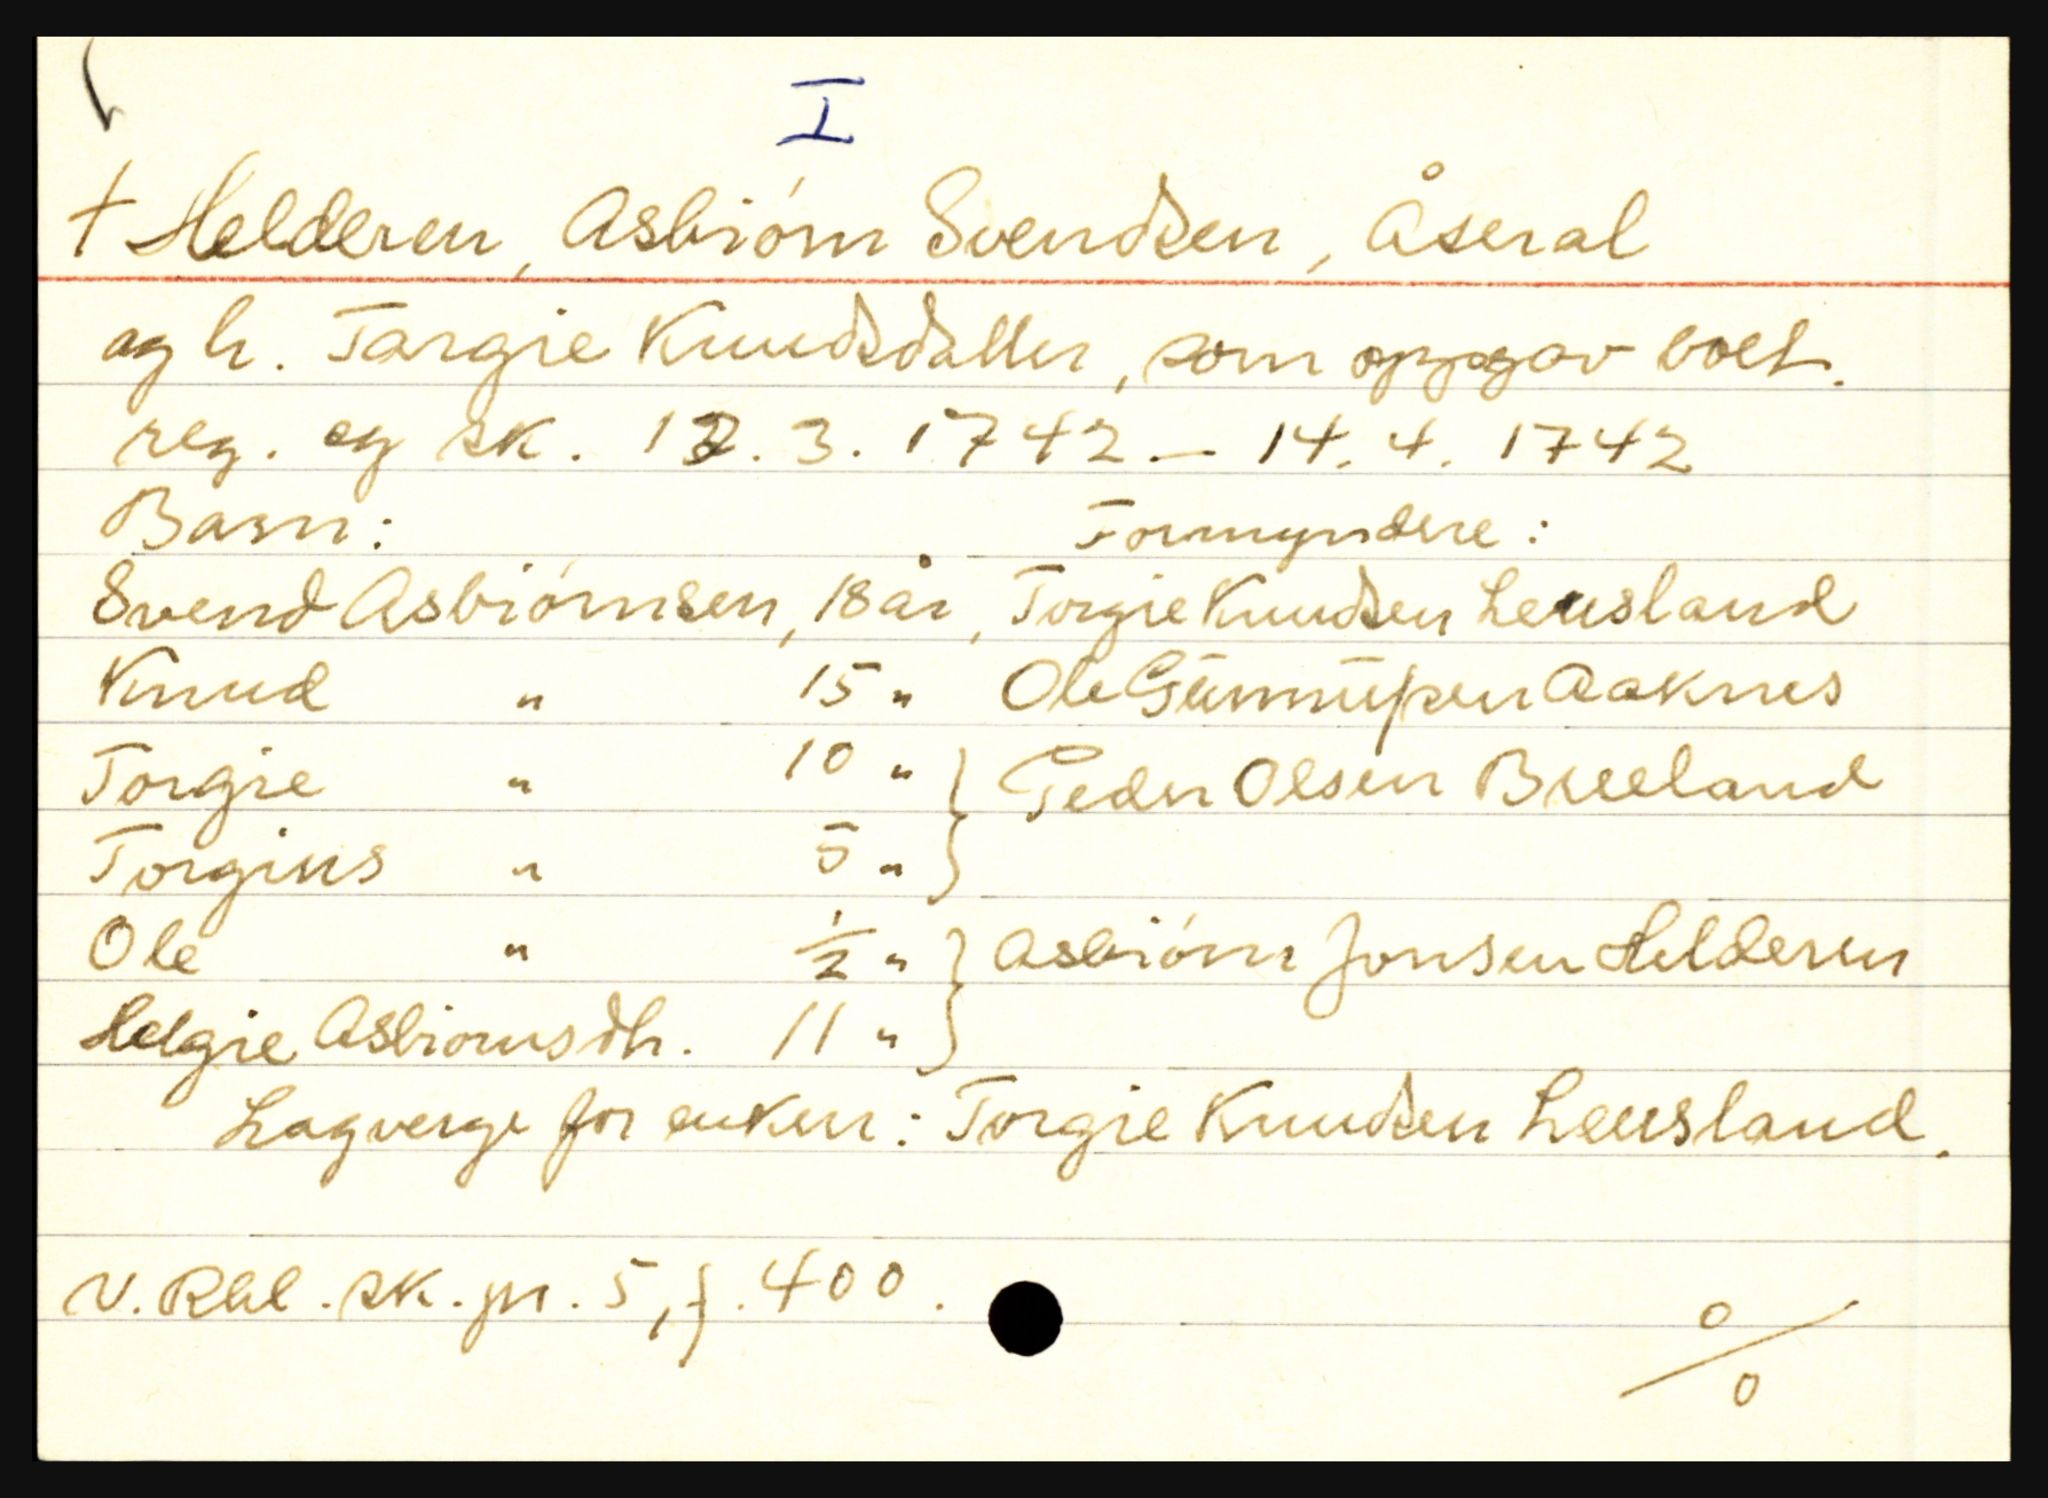 I
† Helderen, Asbiørn Svendsen, Åseral
og h. Targie Knudsdatter, som oppgav boet.
reg. og sk. 12.3.1742 – 14.4.1742
Barn: Formyndere:
Svend Asbiørnsen, 18 år, Torgie Knudsen Leusland
Knud " 15 " Ole Gunnufsen Aaknes
Torgie " 10 " } Peder Olsen Breeland
Torgius " 5 " }
Ole " ½ " } Asbiørn Jonsen Helderen
Helgie Asbiornsdtr. 11 " }
Lagverge for enken: Torgie Knudsen Leusland.
V. Råbl. sk. pr. 5, f. 400.
o/o